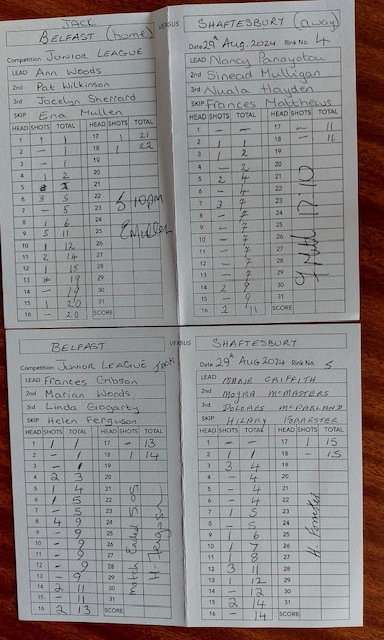 JACK
BELFAST (home) VERSUS SHAFTESBURY (away)
Competition JUNIOR LEAGUE Date 29th Aug. 2024 Rink No. 4
LEAD Ann Woods LEAD Nancy Panayotou
2nd Pat Wilkinson 2nd Sinead Mulligan
3rd Jocelyn Sherrard 3rd Nuala Hayden
SKIP Ena Mullen SKIP Frances Matthews
HEAD SHOTS TOTAL HEAD SHOTS TOTAL HEAD SHOTS TOTAL HEAD SHOTS TOTAL
1 1 1 17 21 1 - - 17 - 11
2 - 1 18 1 22 2 1 1 18 - 11
3 - 1 19 3 1 2 19
4 1 2 20 4 - 2 20
5 21 5 2 4 21
6 3 5 22 6 - 4 22
7 - 5 23 7 3 7 23
8 1 6 24 8 - 7 24
9 5 11 25 9 - 7 25
10 1 12 26 10 - 7 26
11 2 14 27 11 - 7 27
12 1 15 28 12 - 7 28
13 19 29 13 - 7 29
14 - 19 30 14 2 9 30
15 1 20 31 15 - 9 31
16 - 20 SCORE 16 2 11 SCORE
5.10pm
EMullen
17:10
BELFAST VERSUS SHAFTESBURY
Competition JUNIOR LEAGUE Jack Date 29th AUG 2024 Rink No. 5
LEAD Frances Gibson LEAD MARIE GRIFFITH
2nd Marian Woods 2nd MOYRA McMASTERS
3rd Linda Gogarty 3rd DOLORES McPARLAND
SKIP Helen Ferguson SKIP HILARY FORRESTER
HEAD SHOTS TOTAL HEAD SHOTS TOTAL HEAD SHOTS TOTAL HEAD SHOTS TOTAL
1 1 1 17 - 13 1 - - 17 15
2 - 1 18 1 14 2 1 1 18 - 15
3 - 1 19 3 3 4 19
4 2 3 20 4 - 4 20
5 1 4 21 5 - 4 21
6 1 5 22 6 - 4 22
7 - 5 23 7 1 5 23
8 4 9 24 8 - 5 24
9 - 9 25 9 1 6 25
10 - 9 26 10 1 7 26
11 - 9 27 11 1 8 27
12 - 9 28 12 3 11 28
13 - 9 29 13 1 12 29
14 2 11 30 14 - 12 30
15 - 11 31 15 2 14 31
16 2 13 SCORE 16 - 14 SCORE
Match Ended 5.05
H. Ferguson
H. Forrester